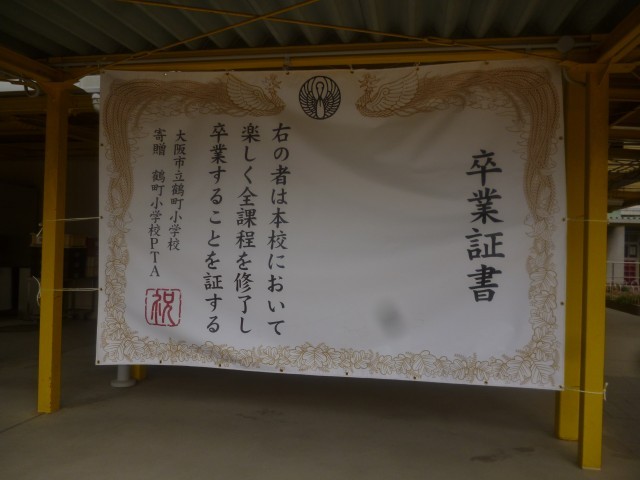 卒業証書
右の者は本校において
楽しく全課程を修了し
卒業することを証する
大阪市立鶴町小学校
寄贈　鶴町小学校PTA
祝